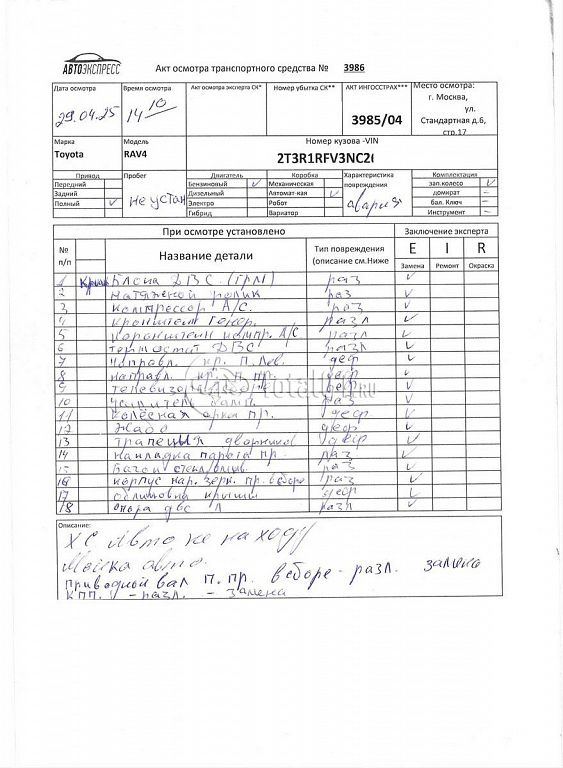 АВТОЭКСПРЕСС
Акт осмотра транспортного средства № 3986
Дата осмотра Время осмотра Акт осмотра эксперта СК* Номер убытка СК** АКТ ИНГОССТРАХ*** Место осмотра:
29.04.25 14 10 3985/04 г. Москва,
ул.
Стандартная д.6,
стр.17
Марка Модель Номер кузова -VIN
Toyota RAV4 2T3R1RFV3NC2
Привод Пробег Двигатель Коробка Характеристика повреждения Комплектация
Передний Бензиновый ✓ Механическая зап.колесо ✓
Задний Дизельный Автомат-кая ✓ домкрат –
Полный ✓ Электро Робот бал. Ключ –
Гибрид Вариатор Инструмент –
не устан авария
При осмотре установлено Заключение эксперта
№ п/п Название детали Тип повреждения (описание см.Ниже E I R
Замена Ремонт Окраска
1 Блока ДВС. (ГРМ) раз ✓
2 натяжной ролик раз ✓
3 компрессор А/С. раз ✓
4 кронштейн разл ✓
5 кронштейн компр. А/С разл ✓
6 термостат ДВС разл ✓
7 направл. кр. п. лев. деф ✓
8 направл. кр. п. пр. деф ✓
9 телевизор деф ✓
10 усилитель раз ✓
11 колесная арка пр. деф ✓
12 жабо деф ✓
13 трапеция дворников деф ✓
14 накладка порога пр. раз ✓
15 Бачок стеклоомыв. раз ✓
16 корпус нар. зерк. пр. в сборе раз ✓
17 облицовка крыши деф ✓
18 опора двс Л разл ✓
Описание:
ХС Авто не на ходу
Мойка авто.
Приводной вал п. пр. в сборе - разл. замена
КПП. - разл. - замена